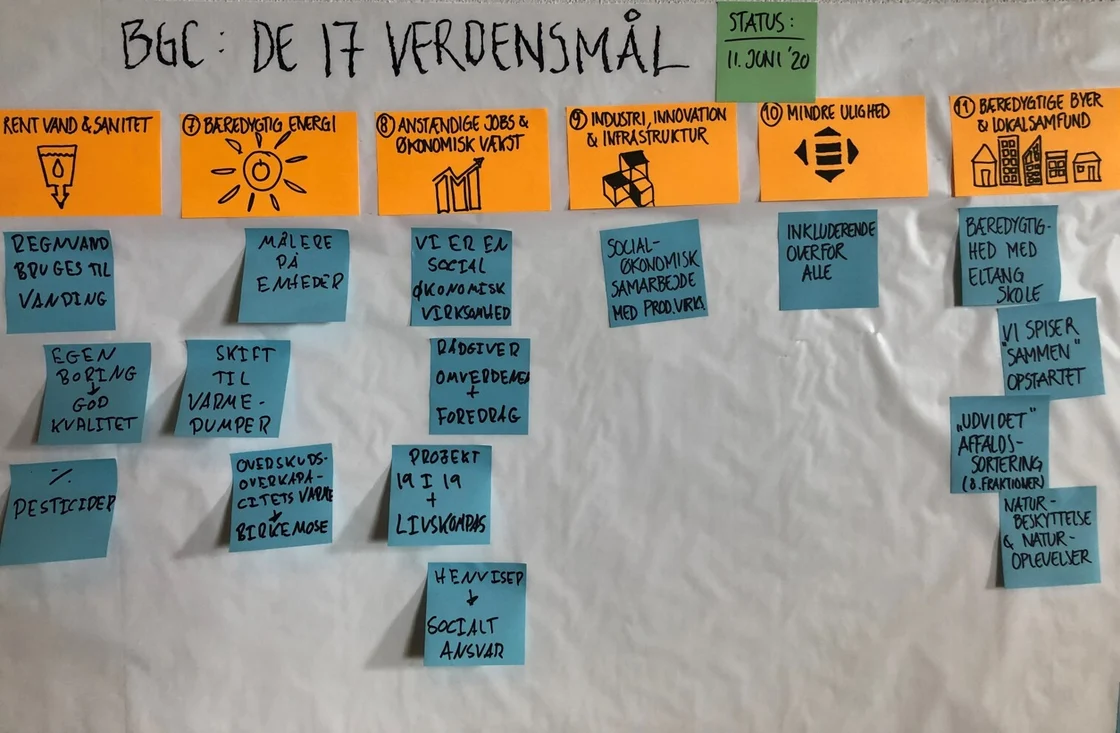 BGC: DE 17 VERDENSMÅL
STATUS:
11. JUNI '20
RENT VAND & SANITET
REGNVAND
BRUGES TIL
VANDING
EGEN
BORING
↓
GOD
KVALITET
%
PESTICIDER
⑦ BÆREDYGTIG ENERGI
MÅLERE
PÅ
ENHEDER
SKIFT
TIL
VARME-
PUMPER
OVERSKUDS-
OVERKAPA-
CITETS VARME
↓
BIRKEMOSE
⑧ ANSTÆNDIGE JOBS &
ØKONOMISK VÆKST
VI ER EN
SOCIAL
ØKONOMISK
VIRKSOMHED
RÅDGIVER
OMVERDENEN
+
FOREDRAG
PROJEKT
19 I 19
+
LIVSKOMPAS
HENVISER
↓
SOCIALT
ANSVAR
⑨ INDUSTRI, INNOVATION
& INFRASTRUKTUR
SOCIAL-
ØKONOMISK
SAMARBEJDE
MED PROD.VIRKS.
⑩ MINDRE ULIGHED
INKLUDERENDE
OVERFOR
ALLE
⑪ BÆREDYGTIGE BYER
& LOKALSAMFUND
BÆREDYGTIG-
HED MED
ELTANG
SKOLE
"VI SPISER
SAMMEN"
OPSTARTET
"UDVIDET"
AFFALDS-
SORTERING
(8. FRAKTIONER)
NATUR-
BESKYTTELSE
& NATUR-
OPLEVELSER